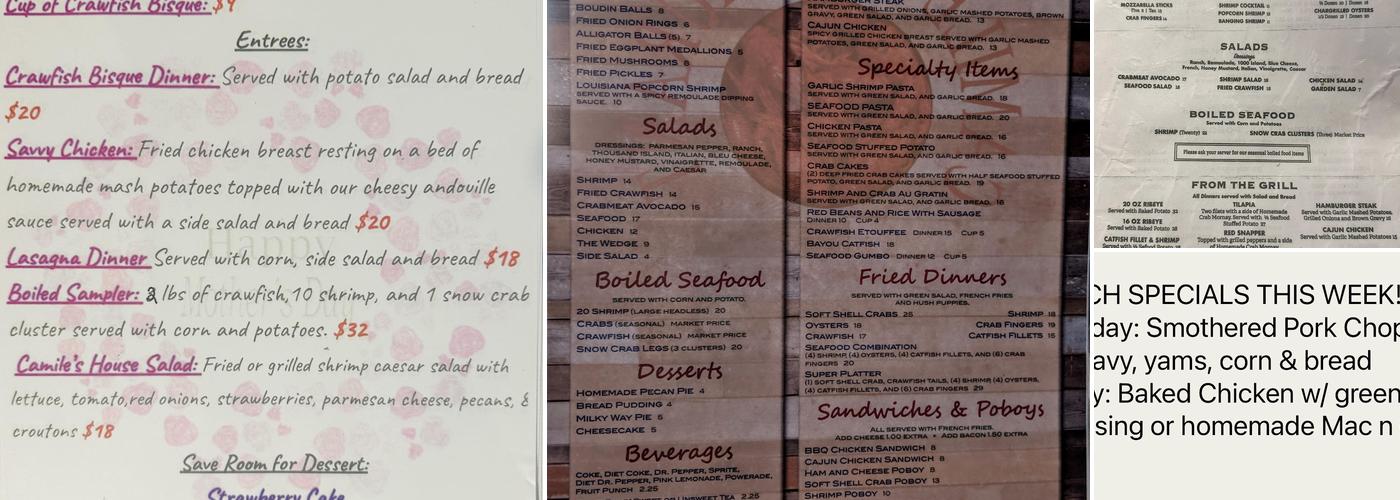 Cup of Crawfish Bisque: $9
Entrees:
Crawfish Bisque Dinner: Served with potato salad and bread
$20
Savvy Chicken: Fried chicken breast resting on a bed of
homemade mash potatoes topped with our cheesy andouille
sauce served with a side salad and bread $20
Lasagna Dinner Served with corn, side salad and bread $18
Boiled Sampler: 3 lbs of crawfish, 10 shrimp, and 1 snow crab
cluster served with corn and potatoes. $32
Camile's House Salad: Fried or grilled shrimp caesar salad with
lettuce, tomato, red onions, strawberries, parmesan cheese, pecans, &
croutons $18
Happy
Mother's Day
Save Room for Dessert:
Strawberry Cake
BOUDIN BALLS 8
FRIED ONION RINGS 6
ALLIGATOR BALLS (5) 7
FRIED EGGPLANT MEDALLIONS 5
FRIED MUSHROOMS 6
FRIED PICKLES 7
LOUISIANA POPCORN SHRIMP
SERVED WITH A SPICY REMOULADE DIPPING
SAUCE. 10
Salads
DRESSINGS: PARMESAN PEPPER, RANCH,
THOUSAND ISLAND, ITALIAN, BLEU CHEESE,
HONEY MUSTARD, VINAIGRETTE, REMOULADE,
AND CAESAR
SHRIMP 14
FRIED CRAWFISH 14
CRABMEAT AVOCADO 15
SEAFOOD 17
CHICKEN 12
THE WEDGE 9
SIDE SALAD 4
Boiled Seafood
SERVED WITH CORN AND POTATO.
20 SHRIMP (LARGE HEADLESS) 20
CRABS (SEASONAL) MARKET PRICE
CRAWFISH (SEASONAL) MARKET PRICE
SNOW CRAB LEGS (3 CLUSTERS) 20
Desserts
HOMEMADE PECAN PIE 4
BREAD PUDDING 4
MILKY WAY PIE 5
CHEESECAKE 5
Beverages
COKE, DIET COKE, DR. PEPPER, SPRITE,
DIET DR. PEPPER, PINK LEMONADE, POWERADE,
FRUIT PUNCH 2.25
OR UNSWEET TEA 2.25
HAMBURGER STEAK
SERVED WITH GRILLED ONIONS, GARLIC MASHED POTATOES, BROWN
GRAVY, GREEN SALAD, AND GARLIC BREAD. 13
CAJUN CHICKEN
SPICY GRILLED CHICKEN BREAST SERVED WITH GARLIC MASHED
POTATOES, GREEN SALAD, AND GARLIC BREAD. 13
Specialty Items
GARLIC SHRIMP PASTA
SERVED WITH GREEN SALAD, AND GARLIC BREAD. 18
SEAFOOD PASTA
SERVED WITH GREEN SALAD, AND GARLIC BREAD. 20
CHICKEN PASTA
SERVED WITH GREEN SALAD, AND GARLIC BREAD. 16
SEAFOOD STUFFED POTATO
SERVED WITH GREEN SALAD, AND GARLIC BREAD. 16
CRAB CAKES
(2) DEEP FRIED CRAB CAKES SERVED WITH HALF SEAFOOD STUFFED
POTATO, GREEN SALAD, AND GARLIC BREAD. 19
SHRIMP AND CRAB AU GRATIN
SERVED WITH GREEN SALAD, AND GARLIC BREAD. 16
RED BEANS AND RICE WITH SAUSAGE
DINNER 10 CUP 4
CRAWFISH ETOUFFEE DINNER 15 CUP 5
BAYOU CATFISH 18
SEAFOOD GUMBO DINNER 12 CUP 5
Fried Dinners
SERVED WITH GREEN SALAD, FRENCH FRIES
AND HUSH PUPPIES.
SOFT SHELL CRABS 25 SHRIMP 18
OYSTERS 18 CRAB FINGERS 19
CRAWFISH 17 CATFISH FILLETS 15
SEAFOOD COMBINATION
(4) SHRIMP, (4) OYSTERS, (4) CATFISH FILLETS, AND (6) CRAB
FINGERS 20
SUPER PLATTER
(1) SOFT SHELL CRAB, CRAWFISH TAILS, (4) SHRIMP, (4) OYSTERS,
(4) CATFISH FILLETS, AND (6) CRAB FINGERS 29
Sandwiches & Poboys
ALL SERVED WITH FRENCH FRIES.
ADD CHEESE 1.00 EXTRA • ADD BACON 1.50 EXTRA
BBQ CHICKEN SANDWICH 8
CAJUN CHICKEN SANDWICH 8
HAM AND CHEESE POBOY 8
SOFT SHELL CRAB POBOY 13
SHRIMP POBOY 10
MOZZARELLA STICKS
CRAB FINGERS 14
SHRIMP COCKTAIL
POPCORN SHRIMP
BANGING SHRIMP
CHARGRILLED OYSTERS
SALADS
Dressings
Ranch, Remoulade, 1000 Island, Blue Cheese,
French, Honey Mustard, Italian, Vinaigrette, Caesar
CRABMEAT AVOCADO 17 SHRIMP SALAD CHICKEN SALAD
SEAFOOD SALAD FRIED CRAWFISH GARDEN SALAD 7
BOILED SEAFOOD
Served with Corn and Potatoes
SHRIMP (Twenty) SNOW CRAB CLUSTERS (Three) Market Price
Please ask your server for our seasonal boiled food items
FROM THE GRILL
All Dinners served with Salad and Bread
20 OZ RIBEYE
Served with Baked Potato
16 OZ RIBEYE
Served with Baked Potato
CATFISH FILLET & SHRIMP
TILAPIA
Two filets with a side of Homemade
Crab Mornay. Served with ½ Seafood
Stuffed Potato
RED SNAPPER
Topped with grilled peppers and a side
of Homemade Crab Mornay
HAMBURGER STEAK
Served with Garlic Mashed Potatoes,
Grilled Onions and Brown Gravy
CAJUN CHICKEN
Served with Garlic Mashed Potatoes
CH SPECIALS THIS WEEK!
day: Smothered Pork Chop
avy, yams, corn & bread
y: Baked Chicken w/ green
sing or homemade Mac n